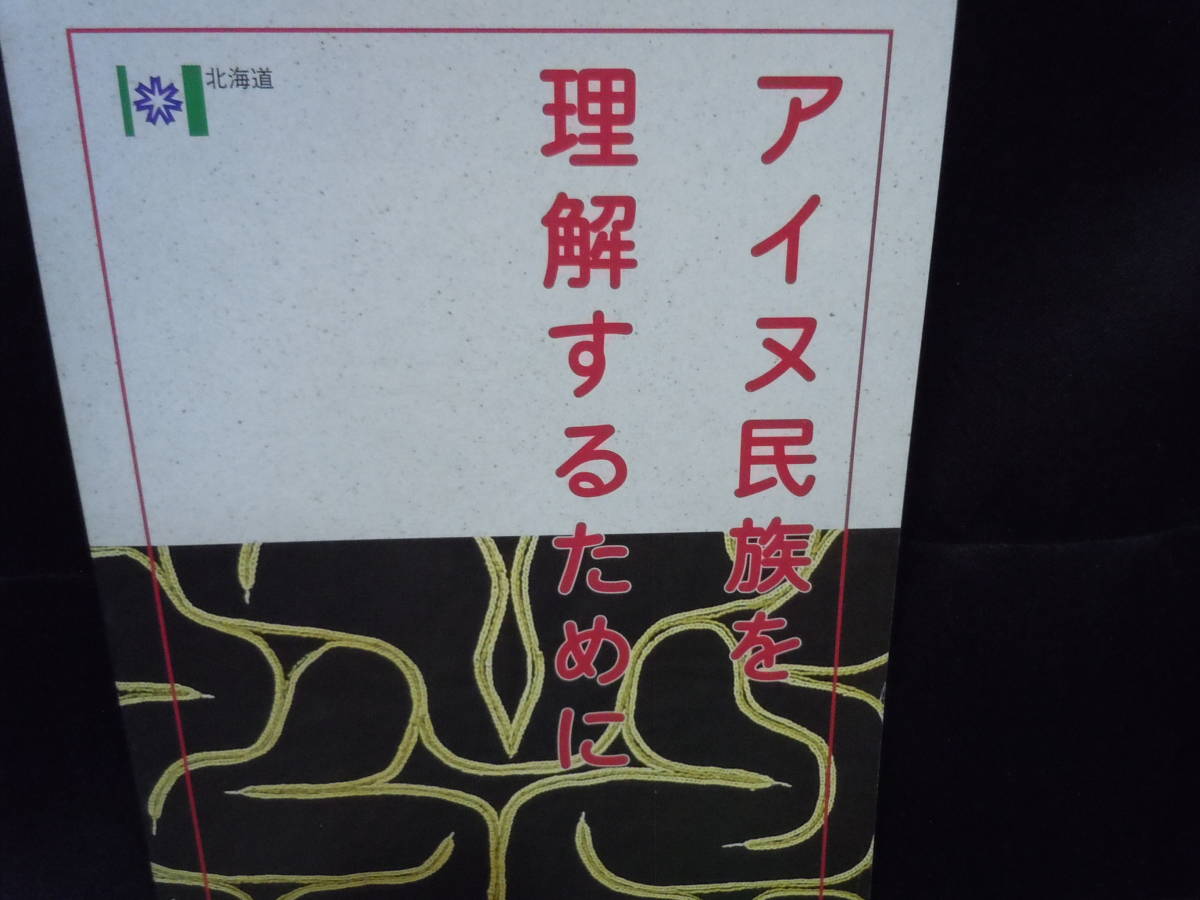 アイヌ民族を
理解するために
北海道